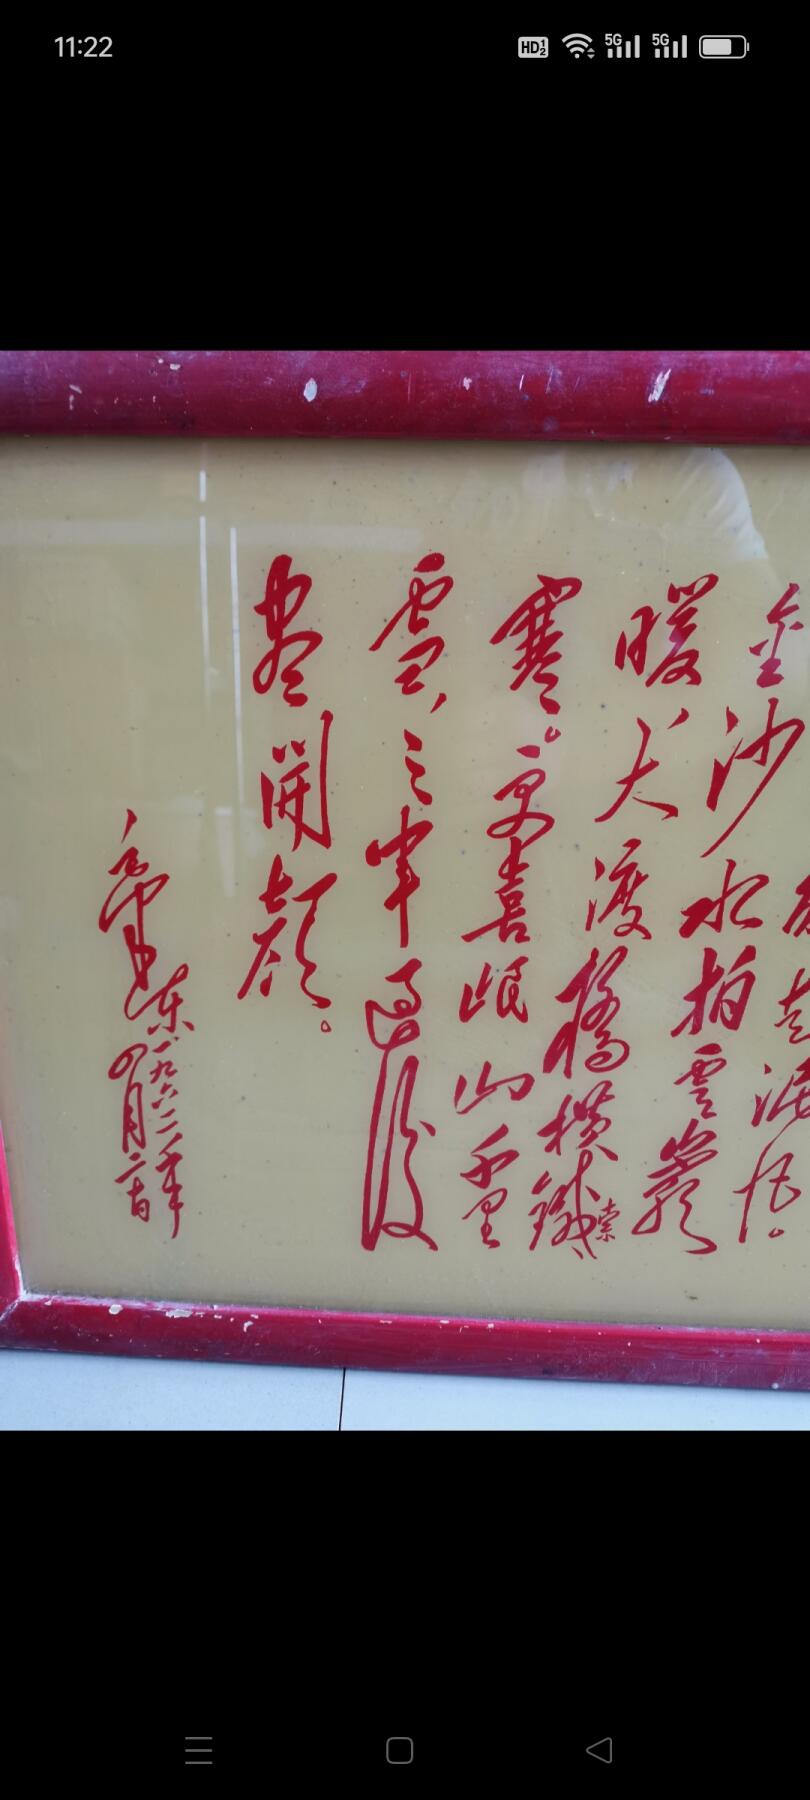 11:22
HD 5G 5G
走泥丸。
金沙水拍雲崖
暖大渡橋橫鐵索
寒。更喜岷山千里
雪,三軍過後
盡開顏。
毛澤東
一九六二年
四月二十日